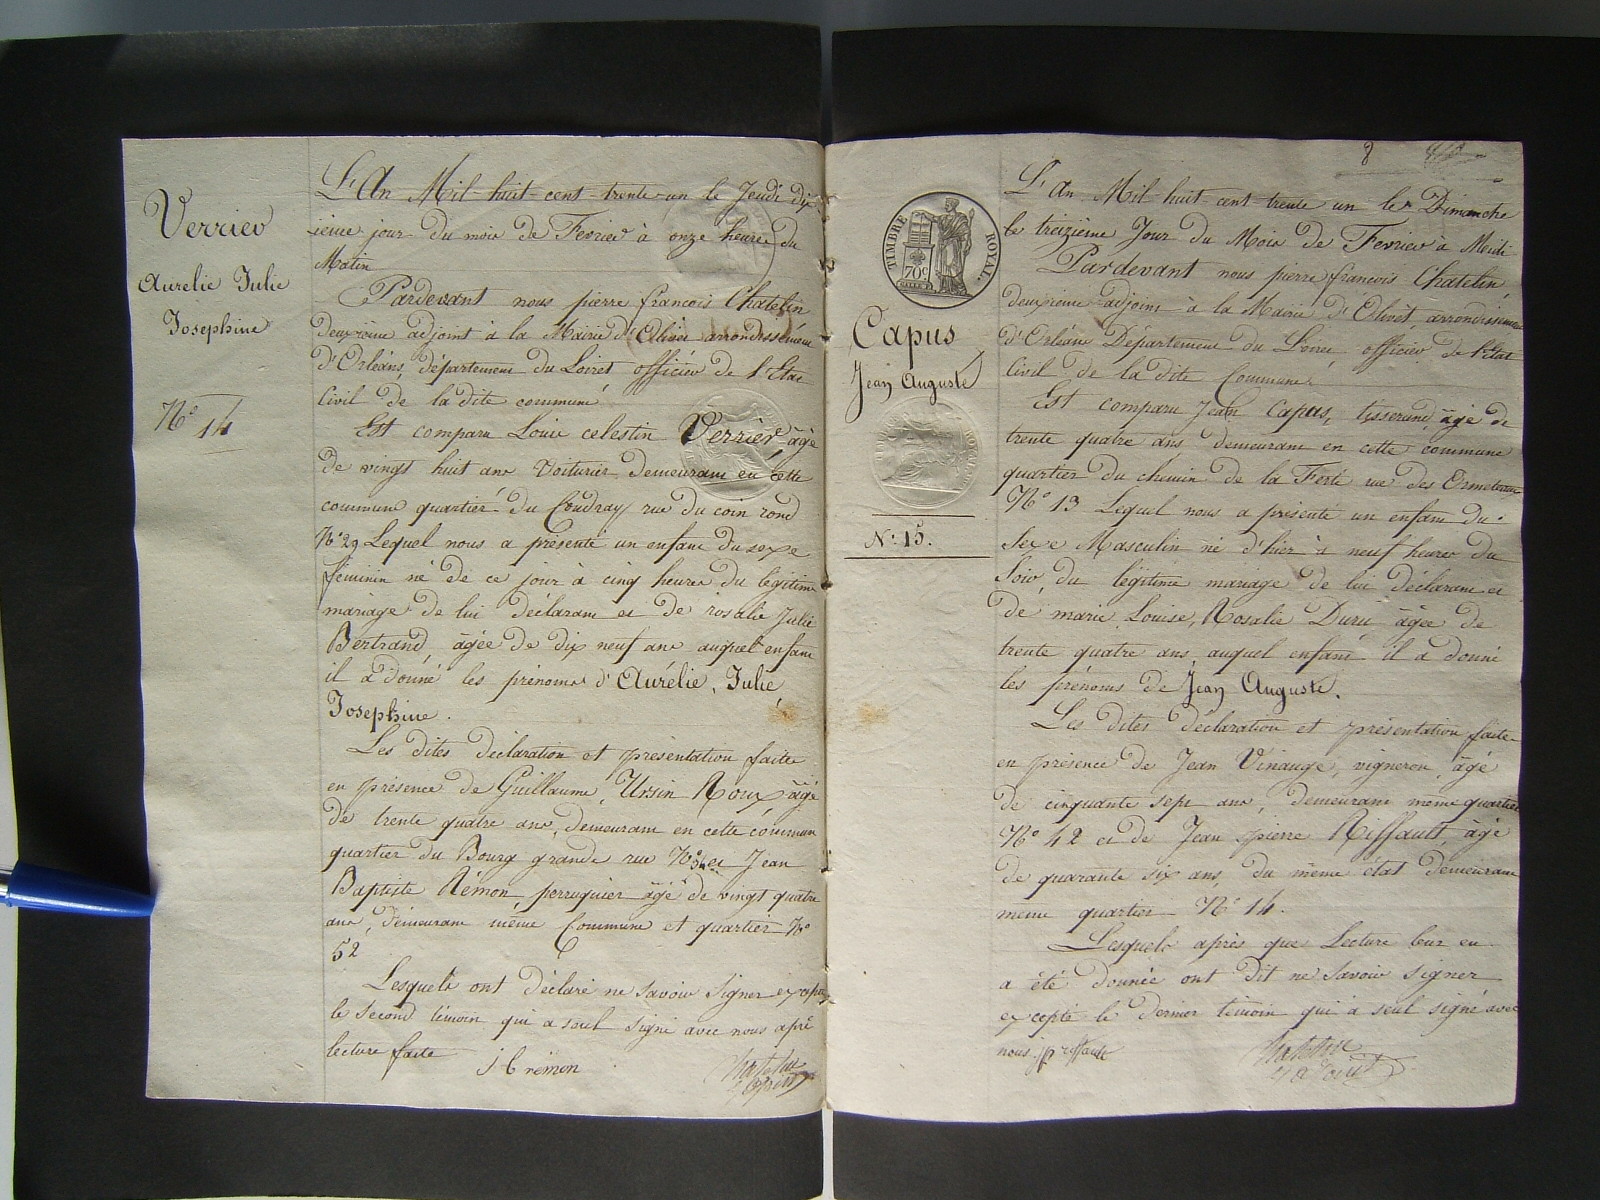 Verrier
Aurelie Julie
Josephine
N° 14
L'An Mil huit cent trente un le Jeudi dix
ieme jour du mois de Fevrier à onze heures du
Matin
Pardevant nous pierre francois Chatelin
deuxième adjoint à la Mairie d'Olivet arrondissement
d'Orléans, département du Loiret officier de l'Etat
Civil de la dite commune
Est comparu Louis celestin Verrier, âgé
de vingt huit ans Voiturier demeurant en cette
commune quartier du Coudray rue du coin rond
N° 29 Lequel nous a présenté un enfant du sexe
féminin né de ce jour à cinq heures du légitime
mariage de lui déclarant et de rosalie Julie
Bertrand, âgée de dix neuf ans auquel enfant
il a donné les prénoms d'Aurélie, Julie
Josephine.
Les dites déclaration et présentation faite
en présence de Guillaume, Ursin Roux âgé
de trente quatre ans, demeurant en cette commune
quartier du Bourg grande rue N° 54 et Jean
Baptiste Rémon perruquier âgé de vingt quatre
ans, demeurant même Commune et quartier N°
52
Lesquels ont déclaré ne savoir signer excepté
le second témoin qui a seul signé avec nous aprè
lecture faite
j b rémon
Chatelin
8
TIMBRE ROYAL.
70c
Capus
Jean Auguste
N° 15.
L'An Mil huit cent trente un le Dimanche
le treizième Jour du Mois de Fevrier à Midi
Pardevant nous pierre francois Chatelin,
deuxième adjoint à la Mairie d'Olivet, arrondissement
d'Orléans Département du Loiret, officier de l'Etat
Civil de la dite Commune
Est comparu Jean Capus, tisserand âgé de
trente quatre ans, demeurant en cette commune
quartier du chemin de la Ferté rue des
N° 13 Lequel nous a présenté un enfant du
Sexe Masculin né d'hier à neuf heures du
Soir, du légitime mariage de lui déclarant et
de marie, Louise, Rosalie Duru âgée de
trente quatre ans, auquel enfant il a donné
les prénoms de Jean Auguste.
Les dites déclaration et présentation faite
en présence de Jean Vinauge, vigneron, âgé
de cinquante sept ans, demeurant même quartier
N° 42 et de Jean pierre Riffault, âgé
de quarante six ans, du même état demeurant
même quartier N° 14.
Lesquels après que Lecture leur en
a été donnée ont dit ne savoir signer
excepté le dernier témoin qui a seul signé avec
nous. jp riffault
Chatelin